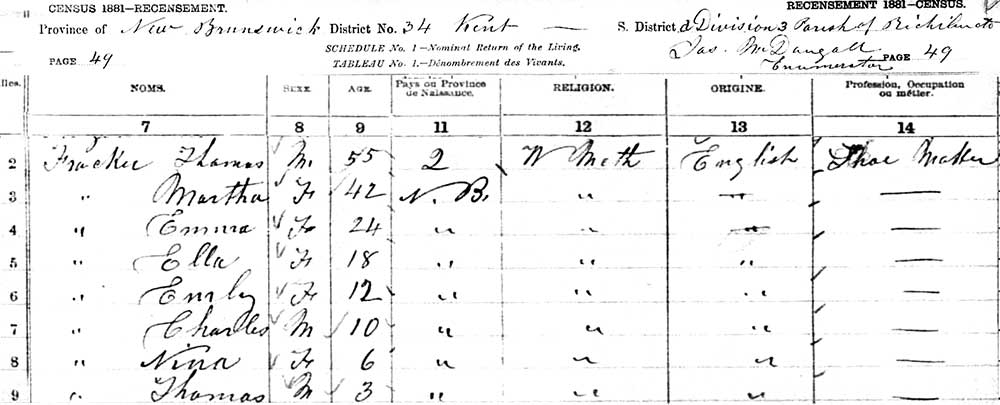 CENSUS 1881–RECENSEMENT. RECENSEMENT 1881–CENSUS.
Province of New Brunswick District No. 34 Kent — S. District d Division 3 Parish of Richibucto
SCHEDULE No. 1—Nominal Return of the Living. Jas. McDougall
PAGE 49 TABLEAU No. 1.—Dénombrement des Vivants. Enumerator PAGE 49
NOMS. SEXE. AGE. Pays ou Province de Naissance. RELIGION. ORIGINE. Profession, Occupation ou métier.
7 8 9 11 12 13 14
2 Thomas M. 55 2 W Meth English Shoe Maker
3 " Martha F 42 N. B. " — —
4 " Emma F 24 " " — —
5 " Ella F 18 " " " —
6 " Emily F 12 " " " —
7 " Charles M 10 " " " —
8 " Nina F 6 " " " —
9 " Thomas M 3 " " " —